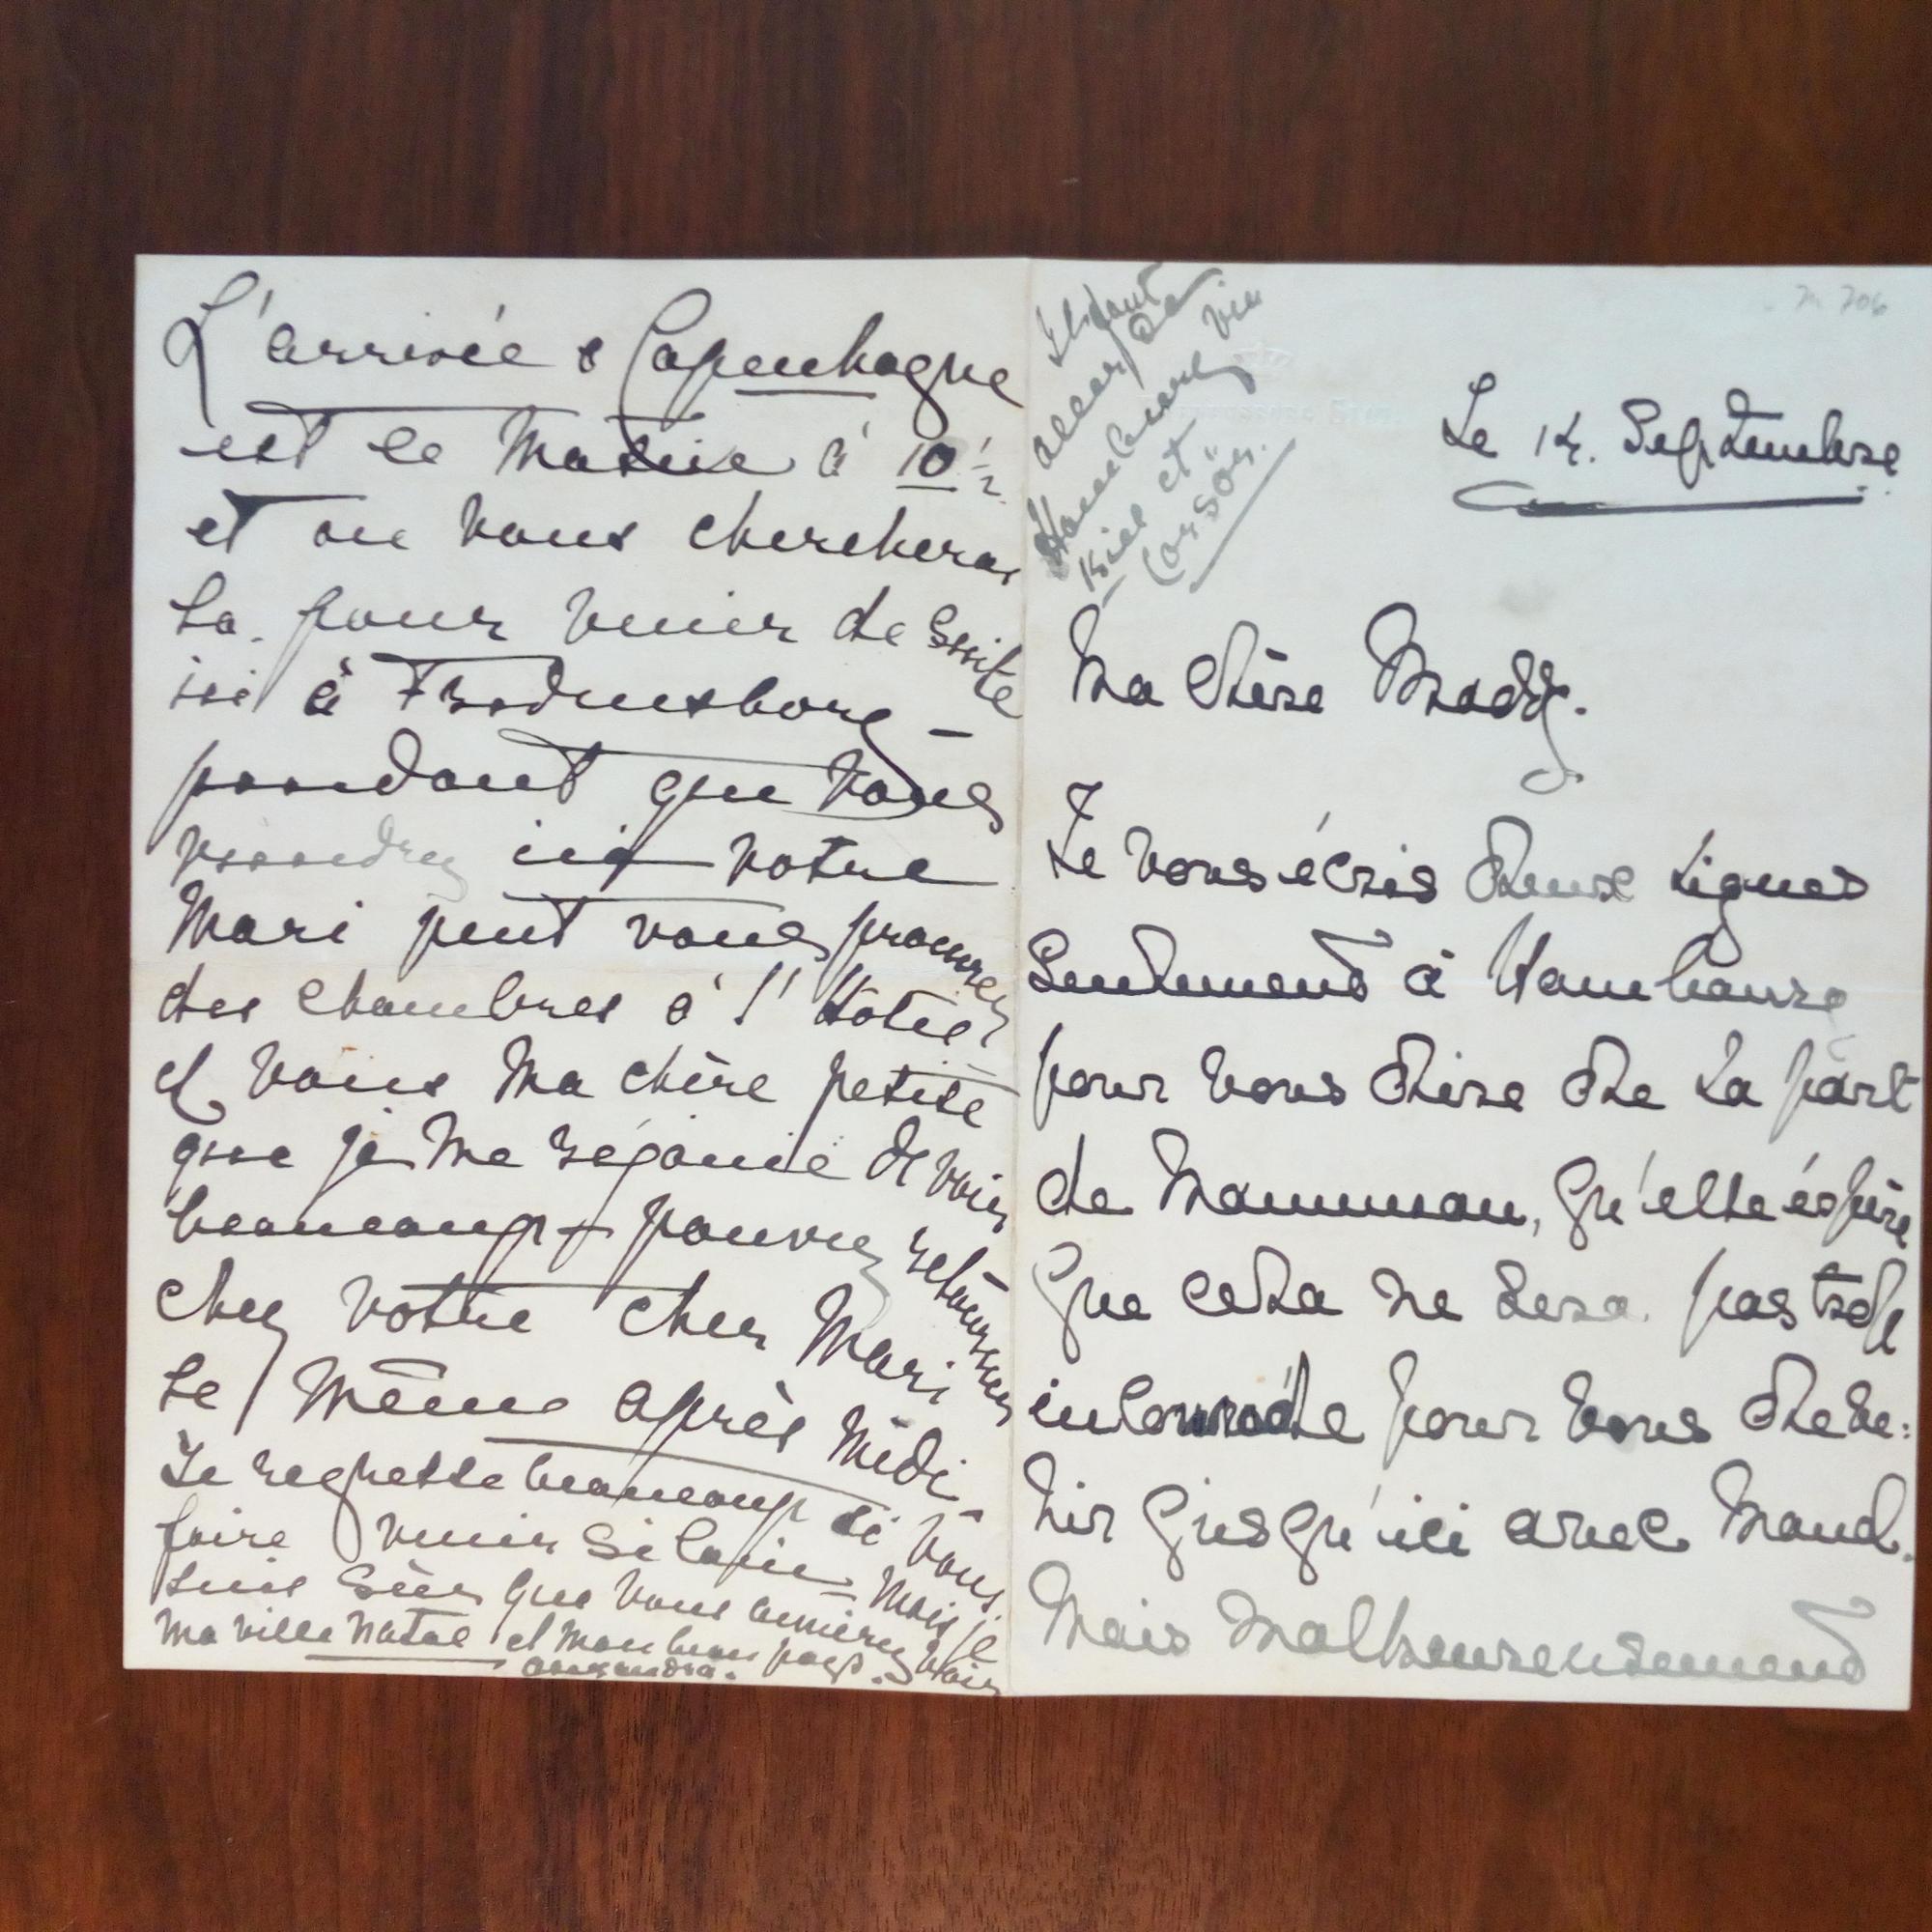 Le 14. Septembre
Ma chère Maddy.
Je vous écris deux lignes
Seulement à Hambourg
pour vous dire de la part
de Mamman, qu'elle éspère
que cela ne sera pas trop
incommode pour vous de ve:
nir jusqu'ici avec Maud.
Mais Malheureusement
Il faut
aller de
Hambourg via
Kiel et
Corsör.
L'arrivée à Copenhague
est le Matin à 10 1/2
et on vous cherchera
la. pour venir de suite
ici à Fredensborg –
pendant que vous
viendrez ici votre
Mari peut vous procurer
des chambres à l'Hotel
et vous Ma chère petite
que je me réjouie de voir
beaucoup – pouvez retourner
chez votre cher Mari
le même après Midi –
Je regrette beaucoup de vous
faire venir si loin – Mais je
suis sûr que vous aimerez voir
Ma ville natal et mon beau pays.